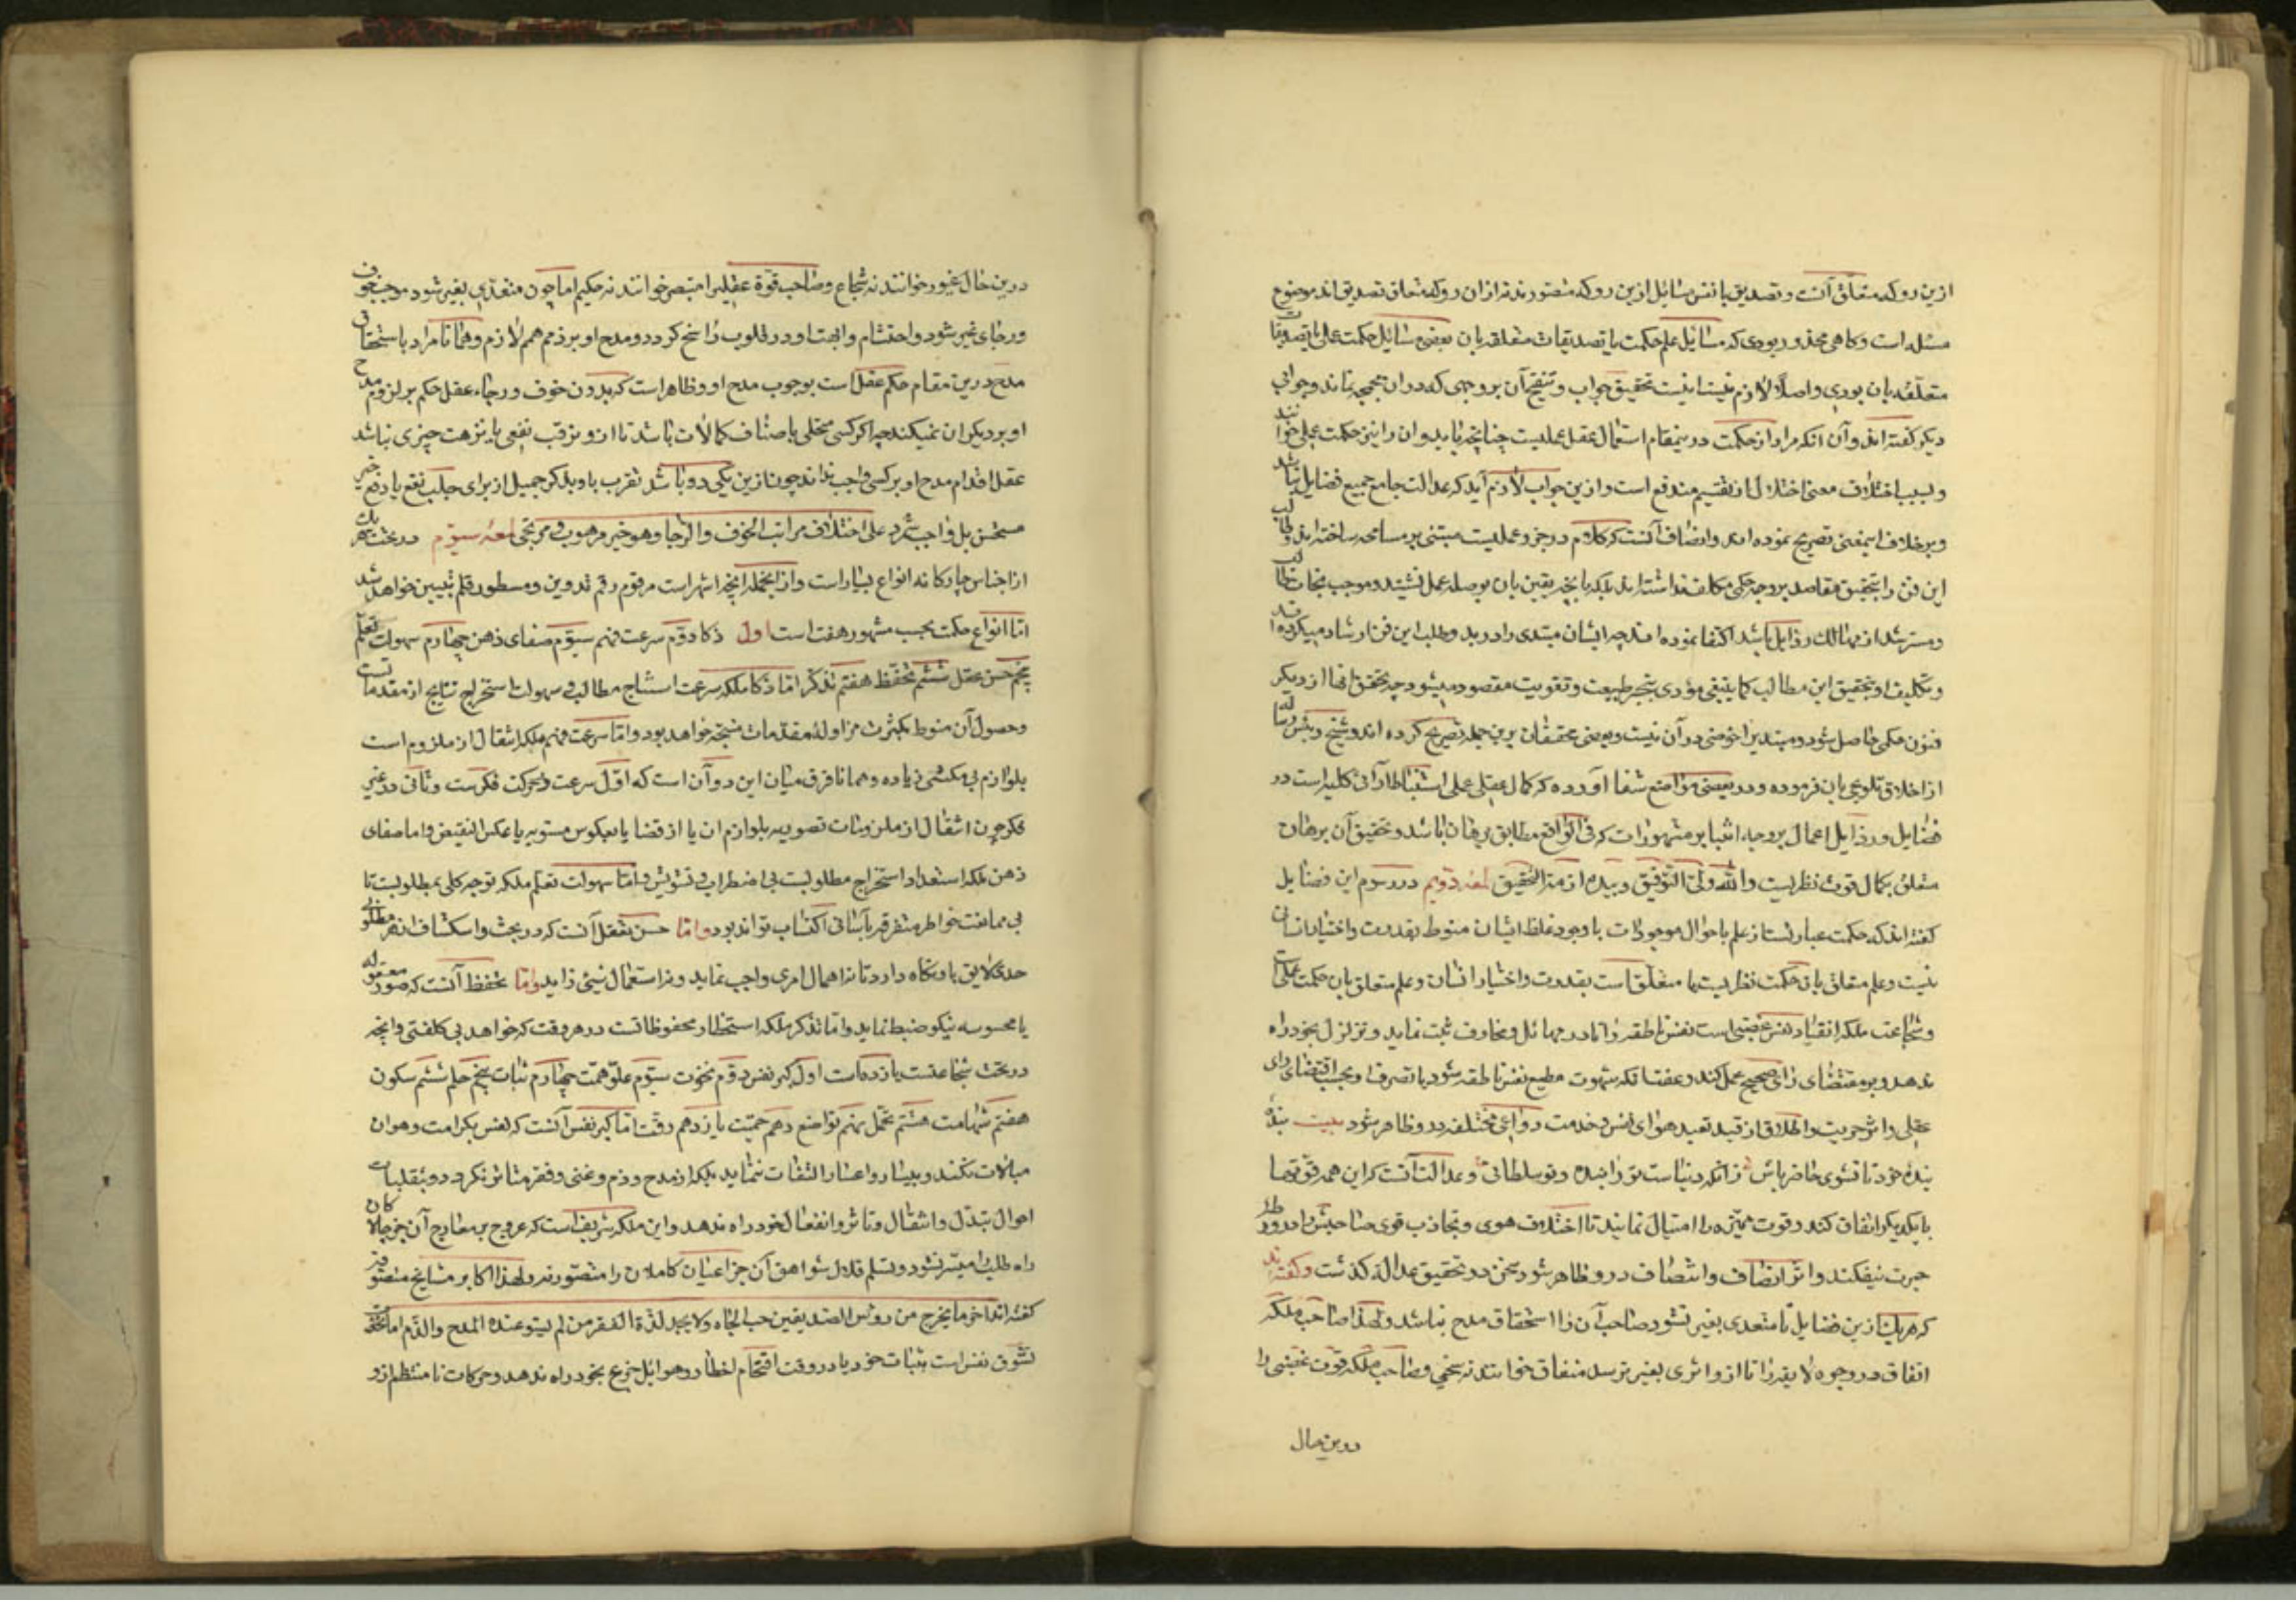 ازین رو که متعلق آنست و تصدیق یا نفس مسائل ازین رو که متصورند نه ازان رو که متعلق تصدیق اند موضوع
مسئله است و کاهی محذور بودی که مسائل علم حکمت یا تصدیقات متعلقه بان بعضی مسائل حکمت عملی یا تصدیقات
متعلقه بان بودی و اصلا لازم نیست اینست تحقیق جواب و تنقیح آن بر وجهی که دران مجمجه نماند و جوابی
دیکر کفته اند و آن انکه مراد از حکمت درینمقام استعمال عقل عملیست چنانچه باید و ان را نیز حکمت عملی خوانند
و بسبب اختلاف معنی اختلال از تقسیم مندفع است و ازین جواب لازم آید که عدالت جامع جمیع فضایل نباشد
و بر خلاف اینمعنی تصریح نموده اند و انصاف آنست که کلام در جزو عملیست مبتنی بر مسامحه ساخته اند و طالب
این فن را بتحقیق مقاصد بر وجه حکمی مکلف نداشته اند بلکه بانچه یقین بان بوصله عمل نشیند و موجب نجات طالب
و مسترشد از مهالک رذایل باشد اکتفا نموده اند چه ایشان مبتدی را در بدو طلب این فن ارشاد میکرده اند
و تکلیف او بتحقیق این مطالب کما ینبغی مؤدی بتحیر طبیعت و تفویت مقصود میشود چه تحقق انها از دیکر
فنون حکمی حاصل شود و مبتدیرا خوضی در آن نیست و بعضی محققان برین جمله تصریح کرده اند و شیخ رئیس در رساله
از اخلاق تلویحی بان فرموده و در بعضی مواضع شفا آورده که کمال عقلی عملی استنباط آرائی کلیه است در
فضایل و رذایل اعمال بر وجه ابتنا بر مشهورات که فی الواقع مطابق برهان باشد و تحقیق آن برهان
متعلق بکمال قوت نظریست والله ولی التوفیق و بیده ازمة التحقیق لمعه دویم در رسوم این فضایل
کفته اند که حکمت عبارتست از علم باحوال موجودات با وجود غلظ ایشان منوط بقدرت و اختیار انسان
نیست و علم متعلق بان حکمت نظریست یا متعلق است بقدرت و اختیار انسان و علم متعلق بان حکمت عملیست
و شجاعت ملکه انقیاد نفس غضبی است نفس ناطقه را تا در مهائل و مخاوف ثبت نماید و تزلزل بخود راه
ندهد و بر مقتضای رأی صحیح عمل کند و عفت انکه شهوت مطیع نفس ناطقه شود تا تصرف او بحسب اقتضای رای
عقلی و اثر حریت و اطلاق از قید تعبد هوای نفس و خدمت دواعی مختلفه در و ظاهر شود بیت بندهٔ
بنده خود تا نشوی حاضر باش زانکه دنیاست تو را بنده و تو سلطانی و عدالت آنست که این همه قوتها
با یکدیکر اتفاق کند و قوت ممیزه را امتثال نمایند تا اختلاف هوی و تجاذب قوی صاحبش را در ورطه
حیرت نیفکند و اثر انصاف و انتصاف در و ظاهر شود سخن در تحقیق عدالة کذشت و کفته اند
که هر یک ازین فضایل تا متعدی بغیر نشود صاحب آن را استحقاق مدح نباشد و لهذا صاحب ملکه
انفاق در وجوه لایقه را تا ازو اثری بغیر نرسد منفاق خوانند نه سخی و صاحب ملکه قوت غضبی را
درین حال
درین حال غیور خوانند نه شجاع و صاحب قوة عقلیرا مبتصر خوانند نه حکیم اما چون متعدی بغیر شود موجب خوف
و رجای غیر شود و احتشام و ابهت او در قلوب راسخ کردد و مدح او بر ذمم همم لازم و همانا مراد باستحقاق
مدح درین مقام حکم عقل است بوجوب مدح او و ظاهر است که بدون خوف و رجاء عقل حکم بر لزوم مدح
او بر دیکران نمیکند چه اکر کسی متحلی باصناف کمالات باشد تا ازو ترقب نفعی یا ترهت چیزی نباشد
عقل اقدام مدح او بر کسی واجب نداند چون ازین یکی دو باشد تقرب باو بذکر جمیل از برای جلب نفع یا دفع خیر
مستحسن بل واجب شمرد علی اختلاف مراتب الخوف والرجا وهو خیر مرهوب و مرتجی لمعه سیوم در تحت هر یک
از اجناس چارکانه انواع بسیار است و از انجمله انچه اشهر است مرقوم رقم تدوین و مسطور قلم تبیین خواهد شد
اما انواع حکمت بحسب مشهور هفت است اول ذکا دوم سرعت فهم سیوم صفای ذهن چهارم سهولت تعلم
پنجم حسن عقل ششم تحفظ هفتم تذکر اما ذکا ملکه سرعت استنتاج مطالب و سهولت استخراج نتایج از مقدماتست
و حصول آن منوط بکثرت مزاوله مقدمات منتجه خواهد بود و اما سرعت فهم ملکه انتقال از ملزوم است
بلوازم بی مکثی زیاده و همانا فرق میان این دو آن است که اول سرعت در حرکت فکرست و ثانی در غیر
فکر چون انتقال از ملزومات تصوریه بلوازم ان یا از قضایا بعکوس مستویه یا عکس النقیض و اما صفای
ذهن ملکه استعداد استخراج مطلوبست بی اضطراب و تشویش و اما سهولت تعلم ملکه توجه کلی بمطلوبست تا
بی ممانعت خواطر متفرقه بآسانی اکتساب تواند بود و اما حسن تعقل آنست که در بحث و استکشاف از هر مطلوبی
حدی لایق باو نکاه دارد تا نه اهمال امری واجب نماید و نه استعمال شیئی زاید و اما تحفظ آنست که صور معقوله
یا محسوسه نیکو ضبط نماید و اما تذکر ملکه استحضار محفوظاتست در هر وقت که خواهد بی کلفتی و انچه
در تحت شجاعتست یازده است اول کبر نفس دوم نجدت سیوم علو همت چهارم ثبات پنجم حلم ششم سکون
هفتم شهامت هشتم تحمل نهم تواضع دهم حمیت یازدهم رقت اما کبر نفس آنست که نفس بکرامت و هوان
مبالات نکند و بیسار و اعسار التفات ننماید بلکه از مدح و ذم و غنی و فقر متاثر نکردد و بتقلبات
احوال تبدل و انتقال و تاثر و انفعال بخود راه ندهد و این ملکه شریف است که عروج بر معارج آن جز چالاکان
راه طلب را میسر نشود و تسلم قلال شواهق آن جز اعیان کاملان را متصور نه و لهذا اکابر مشایخ متصوفه
کفته اند اخر ما یخرج من رؤس الصدیقین حب الجاه ولا یجد لذة الفقر من لم یستو عنده المدح والذم اما نجدت
تشوق نفس است بثبات خود تا در وقت اقتحام اخطار و هوائل جزع بخود راه ندهد و حرکات نا منتظم ازو